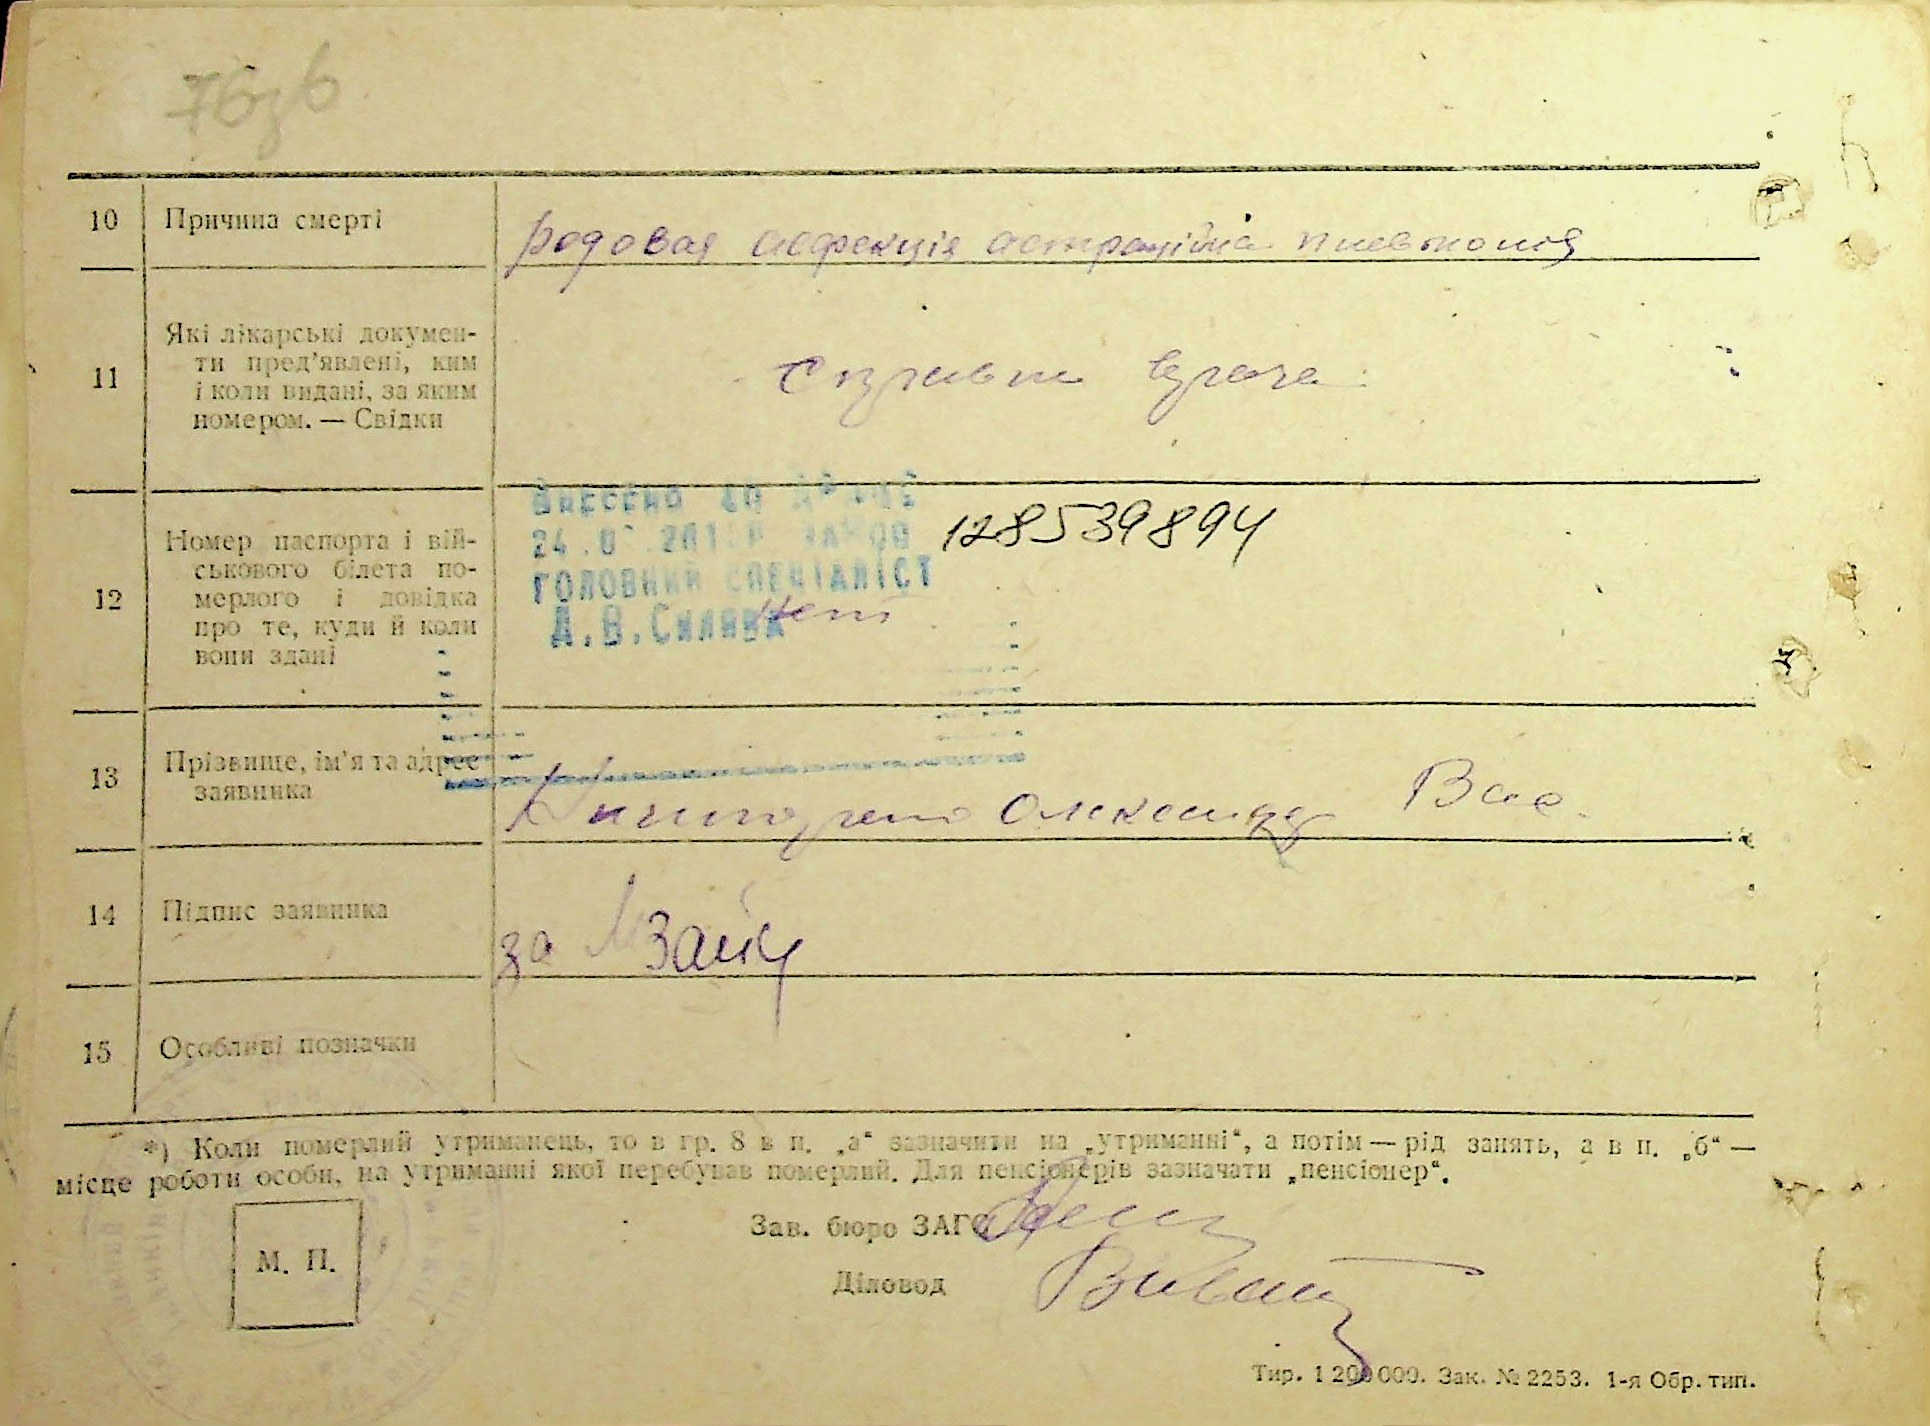 10 Причина смерті родовая асфекція аспраційна пневмонія
11 Які лікарські докумен-
ти пред'явлені, ким
і коли видані, за яким
номером. — Свідки
справка врача
12 Номер паспорта і вій-
ськового білета по-
мерлого і довідка
про те, куди й коли
вони здані
ВНЕСЕНО ДО
24.0
ГОЛОВНИЙ СПЕЦІАЛІСТ
Д.В.Силивк
128539894
нет
13 Прізвище, ім'я та адрес
заявника
Олександр Вас
14 Підпис заявника
за
15 Особливі позначки
*) Коли померлий утриманець, то в гр. 8 в п. „а“ зазначити на „утриманні“, а потім — рід занять, а в п. „б“ —
місце роботи особи, на утриманні якої перебував померлий. Для пенсіонерів зазначати „пенсіонер“.
Зав. бюро ЗАГС
М. П.
Діловод
Тир. 1 200 000. Зак. № 2253. 1-я Обр. тип.